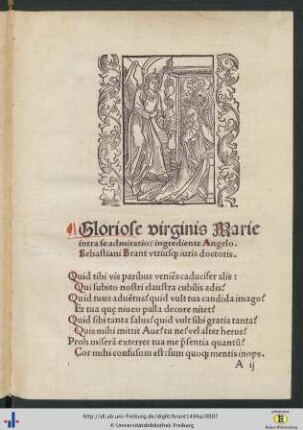 ¶ Gloriose virginis Marie
intra se admiratio: ingrediente Angelo.
Sebastiani Brant vtriusq; iuris doctoris.
Quid tibi vis paribus veniēs caducifer alis?
Qui subito nostri claustra cubilis adis?
Quid tuus aduētus? quid vult tua candida imago?
Et tua quę niueo palla decore nitet?
Quid sibi tanta salus? quid vult sibi gratia tanta?
Quis mihi mittit Aue? tu ne? vel alter herus?
Proh miserā exterret tua me p̄sentia quantū?
Cor mihi confusum est: sum quoq; mentis inops.
A ij
http://dl.ub.uni-freiburg.de/diglit/brant1494a/0007
© Universitätsbibliothek Freiburg